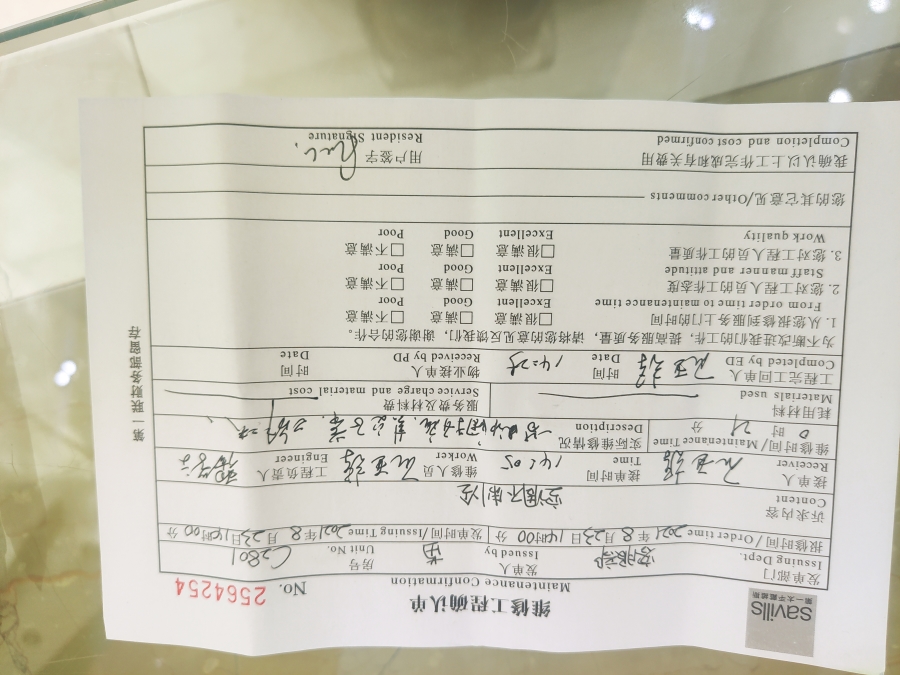 savills
第一太平戴维斯
维修工程确认单
Maintenance Confirmation
No. 2564254
发单部门 客服部 发单人 房号 C2801
Issuing Dept. Issued by Unit No.
报修时间/Order time 2021年8月23日14时00分 发单时间/Issuing Time 2021年8月23日14时00分
诉求内容 空调不制冷
Content
接单人 接单时间 14:05 维修人员 工程负责人
Receiver Time Worker Engineer
维修时间/Maintenance Time 实际维修情况
0时21分 Description
耗用材料 服务费及材料费
Materials used Service charge and material cost
工程完工回单人 时间 14:25 物业接单人 时间
Completed by ED Date Received by PD Date
为不断改进我们的工作，提高服务质量，请将您的意见反馈我们，谢谢您的合作。
1. 您从报修到服务上门的时间 □很满意 □满意 □不满意
From order time to maintenance time Excellent Good Poor
2. 您对工程人员的工作态度 □很满意 □满意 □不满意
Staff manner and attitude Excellent Good Poor
3. 您对工程人员的工作质量 □很满意 □满意 □不满意
Work quality Excellent Good Poor
您的其它意见/Other comments
我确认以上工作完成和有关费用 用户签字
Completion and cost confirmed Resident Signature
第一联财务部留存